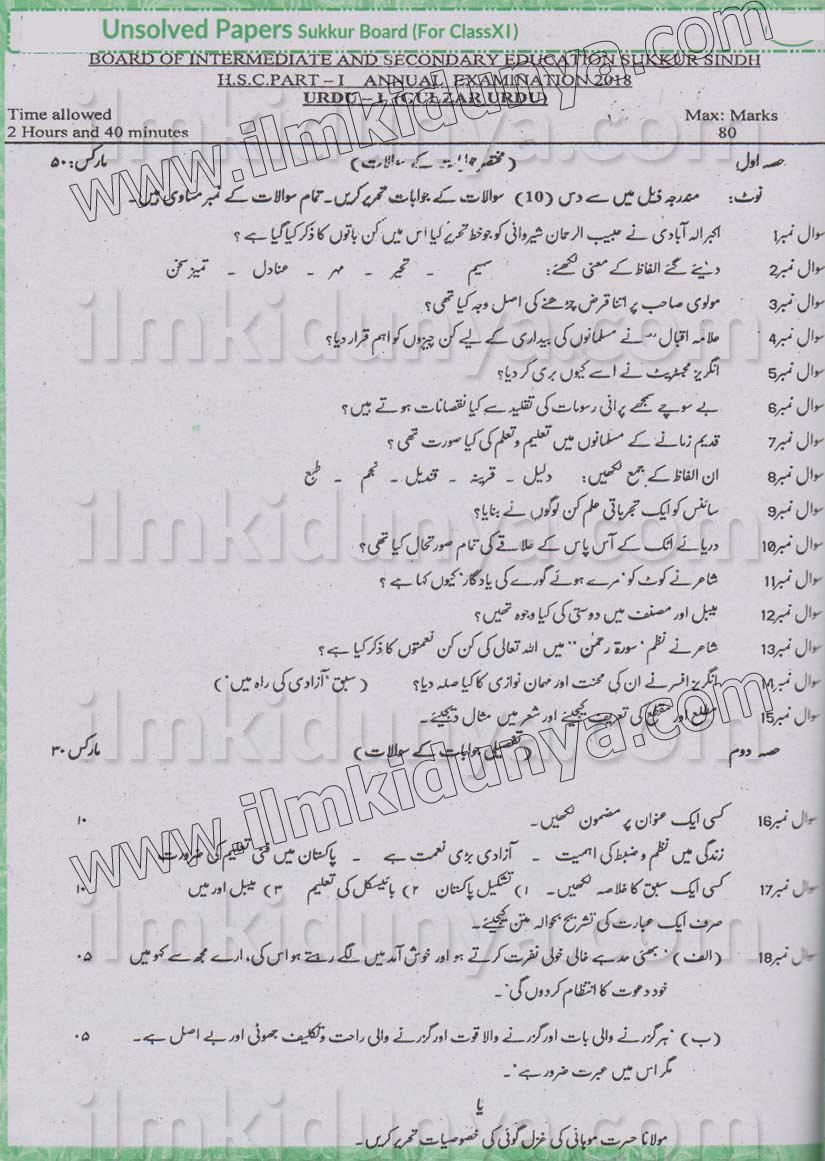 Unsolved Papers Sukkur Board (For ClassXI)
BOARD OF INTERMEDIATE AND SECONDARY EDUCATION SUKKUR SINDH
H.S.C.PART – I ANNUAL EXAMINATION 2018
URDU – I (GULZAR URDU)
Time allowed Max: Marks
2 Hours and 40 minutes 80
حصہ اول (مختصر جوابات کے سوالات) مارکس: ۵۰
نوٹ: مندرجہ ذیل میں سے دس (10) سوالات کے جوابات تحریر کریں۔ تمام سوالات کے نمبر مساوی ہیں۔
سوال نمبر1 اکبر الہ آبادی نے حبیب الرحمان شیروانی کو جو خط تحریر کیا اُس میں کن باتوں کا ذکر کیا گیا ہے ؟
سوال نمبر2 دیئے گئے الفاظ کے معنی لکھئے: سہیم ۔ تحیر ۔ مہر ۔ عنادل ۔ تمیز سخن
سوال نمبر3 مولوی صاحب پر اتنا قرض چڑھنے کی اصل وجہ کیا تھی؟
سوال نمبر4 علامہ اقبال نے مسلمانوں کی بیداری کے لیے کن چیزوں کو اہم قرار دیا؟
سوال نمبر5 انگریز مجسٹریٹ نے اسے کیوں بری کر دیا؟
سوال نمبر6 بے سوچے سمجھے پرانی رسومات کی تقلید سے کیا نقصانات ہوتے ہیں؟
سوال نمبر7 قدیم زمانے کے مسلمانوں میں تعلیم و تعلم کی کیا صورت تھی ؟
سوال نمبر8 ان الفاظ کے جمع لکھیں: دلیل ۔ قرینہ ۔ قندیل ۔ نجم ۔ طبع
سوال نمبر9 سائنس کو ایک تجرباتی علم کن لوگوں نے بنایا؟
سوال نمبر10 دریائے اٹک کے آس پاس کے علاقے کی تمام صورتحال کیا تھی؟
سوال نمبر11 شاعر نے کوٹ کو 'مرے ہوئے گورے کی یادگار' کیوں کہا ہے ؟
سوال نمبر12 میبل اور مصنف میں دوستی کی کیا وجوہ تھیں؟
سوال نمبر13 شاعر نے نظم 'سورۃ رحمٰن' میں اللہ تعالی کی کن کن نعمتوں کا ذکر کیا ہے؟
سوال نمبر14 انگریز افسر نے ان کی محنت اور مہمان نوازی کا کیا صلہ دیا؟ (سبق 'آزادی کی راہ میں')
سوال نمبر15 مطلع اور مقطع کی تعریف کیجیئے اور شعر میں مثال دیجیئے۔
حصہ دوم (تفصیلی جوابات کے سوالات) مارکس ۳۰
سوال نمبر16 کسی ایک عنوان پر مضمون لکھیں۔ ۱۰
زندگی میں نظم و ضبط کی اہمیت ۔ آزادی بڑی نعمت ہے ۔ پاکستان میں فنی تعلیم کی ضرورت
سوال نمبر17 کسی ایک سبق کا خلاصہ لکھیں۔ ۱) تشکیل پاکستان ۲) بائیسکل کی تعلیم ۳) میبل اور میں ۱۰
صرف ایک عبارت کی تشریح بحوالہ متن کیجیئے۔
سوال نمبر18 (الف) 'بھئی حد ہے خالی خولی نفرت کرتے ہو اور خوش آمد میں لگے رہتے ہو اس کی، ارے مجھ سے کہو میں ۰۵
خود دعوت کا انتظام کر دوں گی'۔
(ب) 'ہر گزرنے والی بات اور گزرنے والا وقت اور گزرنے والی راحت و تکلیف جھوٹی اور بے اصل ہے۔ ۰۵
مگر اس میں عبرت ضرور ہے'۔
یا
مولانا حسرت موہانی کی غزل گوئی کی خصوصیات تحریر کریں۔
www.ilmkidunya.com
ilmkidunya.com
ilmkidunya.com
www.ilmkidunya.com
ilmkidunya.com
ilmkidunya.com